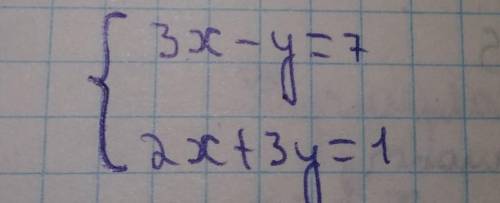 3x - y = 7
2x + 3y = 1